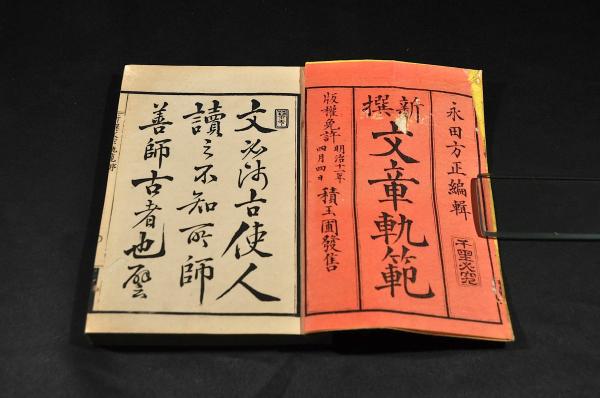 永田方正編輯
千里必究
新撰
文章軌範
版權免許 明治十一年
四月四日
積玉圃發售
文必師古使人
讀之不知所師
善師古者也譬